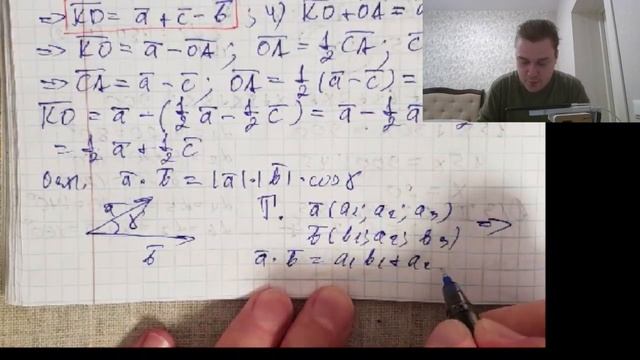 => K̅D̅ = a̅ + c̅ - b̅ ; 4) K̅O̅ + O̅A̅ = a
=> K̅O̅ = a̅ - O̅A̅ ; O̅A̅ = ½ C̅A̅ ; C
=> C̅A̅ = a̅ - c̅ ; O̅A̅ = ½ (a̅ - c̅) =
K̅O̅ = a̅ - (½ a̅ - ½ c̅) = a̅ - ½ a̅
= ½ a̅ + ½ c̅
a̅ · b̅ = |a̅| · |b̅| · cos γ
a̅ γ
b̅
T. a̅ (a₁; a₂; a₃) =>
b̅ (b₁; a₂; b₃)
a̅ · b̅ = a₁ b₁ + a₂